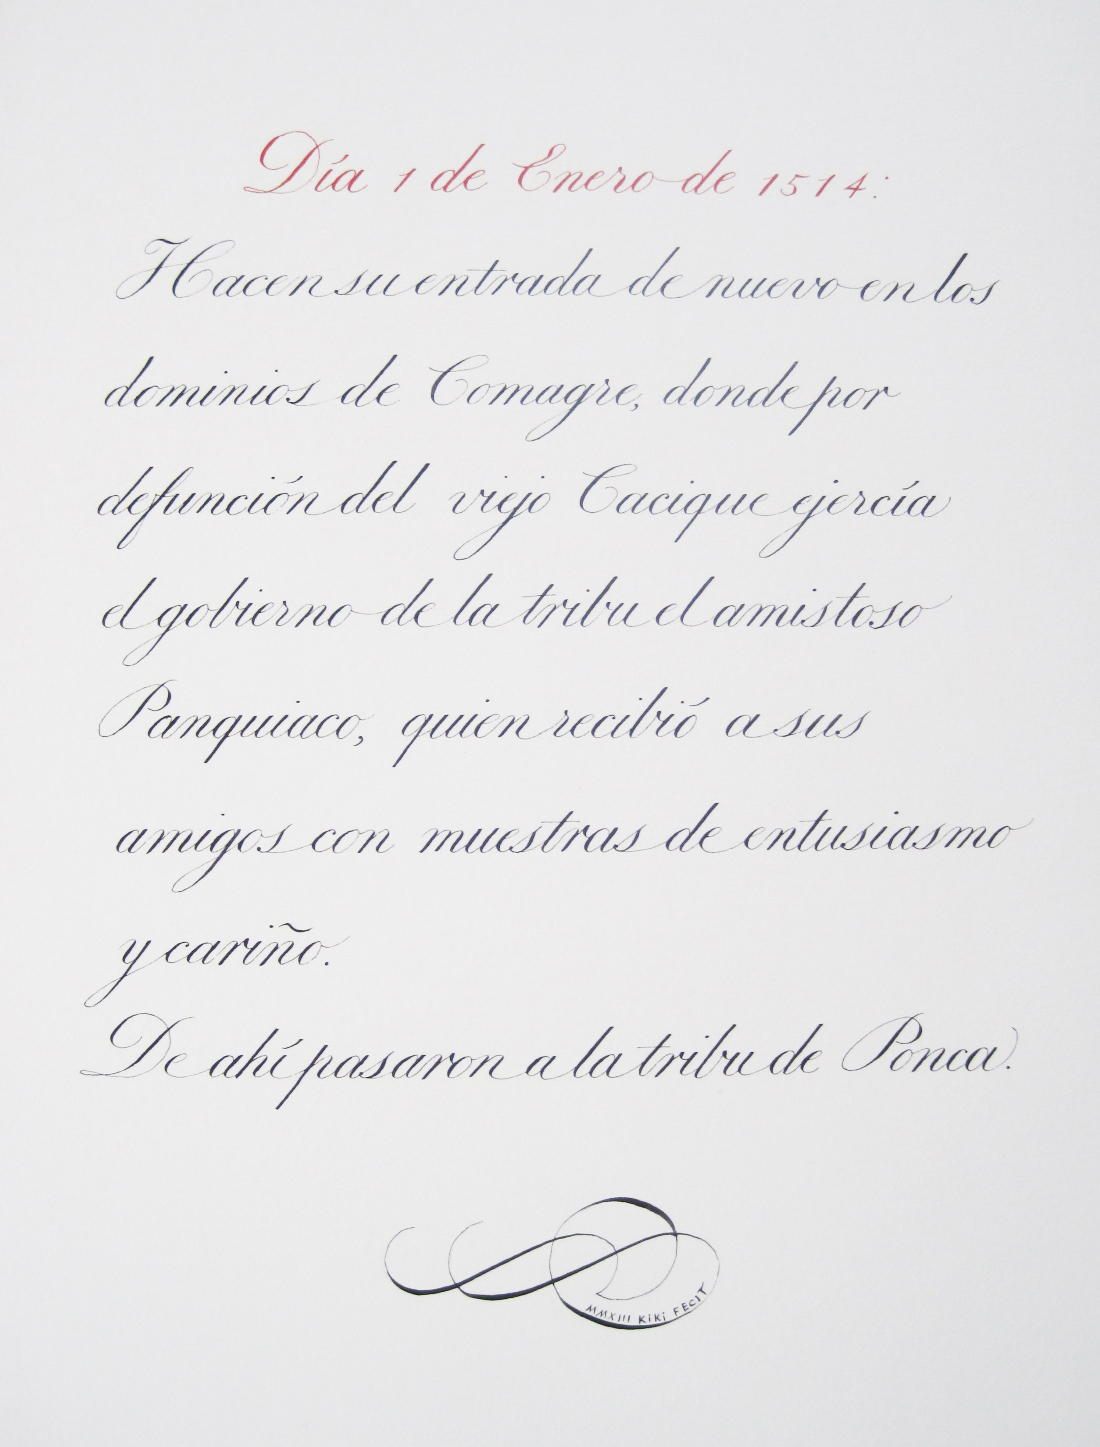 Día 1 de Enero de 1514:
Hacen su entrada de nuevo en los
dominios de Comagre, donde por
defunción del viejo Cacique ejercía
el gobierno de la tribu el amistoso
Panquiaco, quien recibió a sus
amigos con muestras de entusiasmo
y cariño.
De ahí pasaron a la tribu de Ponca.
MMXIII KiKi FECIT